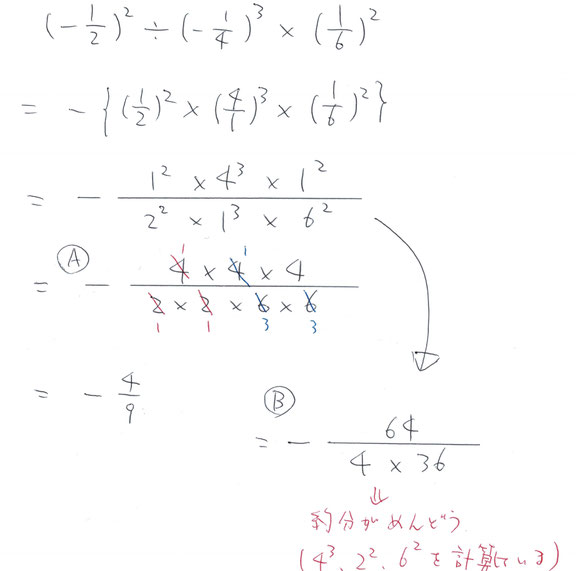 (-1/2)² ÷ (-1/4)³ × (1/6)²
= - { (1/2)² × (4/1)³ × (1/6)² }
= - (1² × 4³ × 1²) / (2² × 1³ × 6²)
Ⓐ
1 1
= - (4 × 4 × 4) / (2 × 2 × 6 × 6)
1 1 3 3
= - 4/9
Ⓑ
= - 64 / (4 × 36)
⇓
約分がめんどう
(4³、2²、6²を計算している)